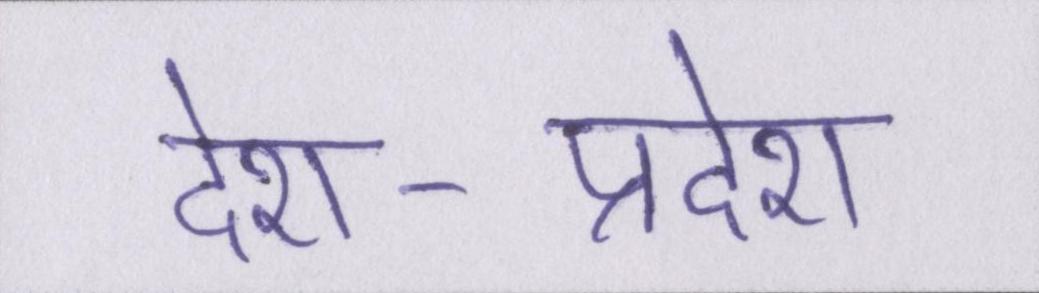 देश - प्रदेश